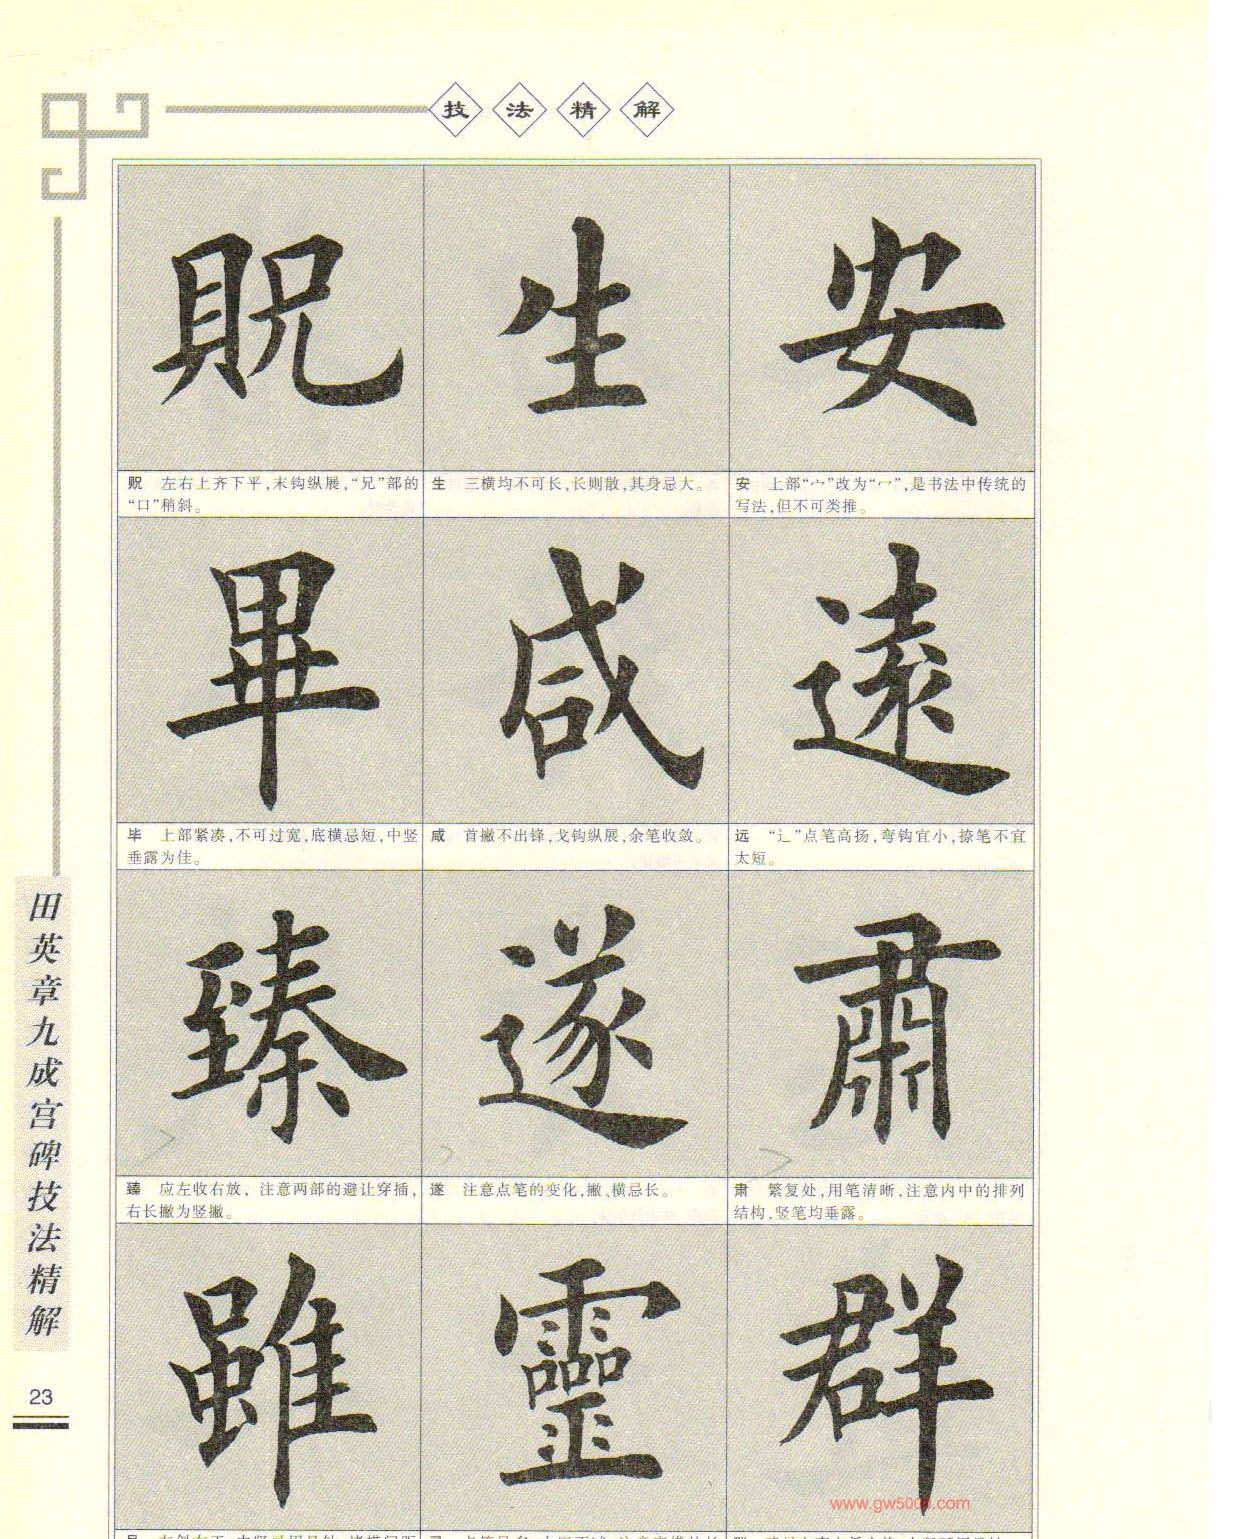 技法精解
貺 生 安
贶 左右上齐下平,末钩纵展,“兄”部的
“口”稍斜。
生 三横均不可长,长则散,其身忌大。
安 上部“宀”改为“冖”,是书法中传统的
写法,但不可类推。
畢 咸 遠
毕 上部紧凑,不可过宽,底横忌短,中竖
垂露为佳。
咸 首撇不出锋,戈钩纵展,余笔收敛。
远 “辶”点笔高扬,弯钩宜小,捺笔不宜
太短。
臻 遂 肅
臻 应左收右放,注意两部的避让穿插,
右长撇为竖撇。
遂 注意点笔的变化,撇、横忌长。
肃 繁复处,用笔清晰,注意内中的排列
结构,竖笔均垂露。
雖 靈 群
田英章九成宫碑技法精解
23
www.gw500.com